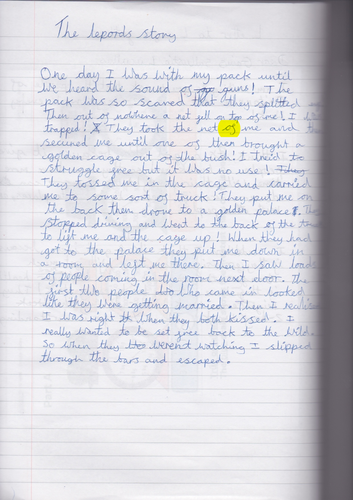 The lepords story
One day I was with my pack until
we heard the sound of guns! The
pack was so scared that they splitted
Then out of nowhere a net fell on top of me! I
trapped! They took the net of me and
secured me until one of then brought a
golden cage out of the bush! I tried to
struggle free but it was no use!
They tossed me in the cage and carried
me to some sort of truck! They put me on
the back then drove to a golden palace!
stopped driving and went to the back of the
to lift me and the cage up! When they had
got to the palace they put me down in
a room and left me there. Then I saw loads
of people coming in the room next door. The
first two people who came in looked
like they were getting married. Then I realised
I was right when they both kissed. I
really wanted to be set free back to the wild.
So when they werent watching I slipped
through the bars and escaped.